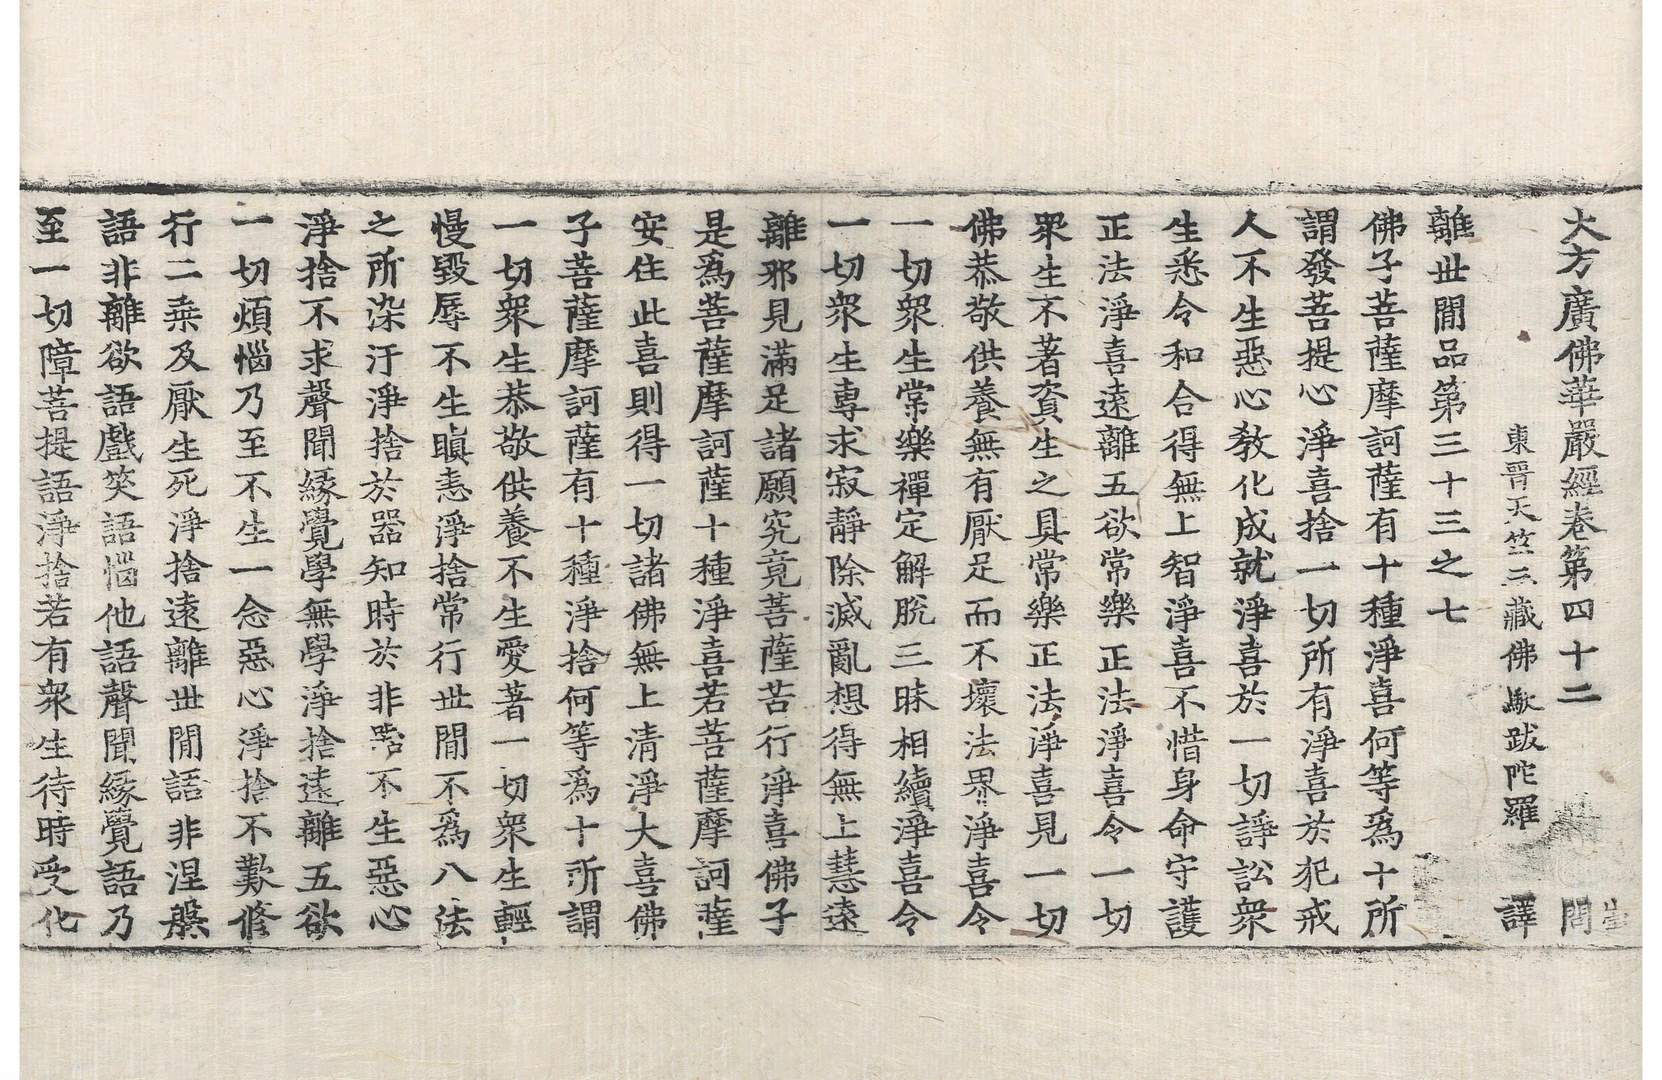 大方廣佛華嚴經卷第四十二 問
東晉天竺三藏佛馱跋陀羅 譯
離世閒品第三十三之七
佛子菩薩摩訶薩有十種淨喜何等爲十所
謂發菩提心淨喜捨一切所有淨喜於犯戒
人不生惡心教化成就淨喜於一切諍訟衆
生悉令和合得無上智淨喜不惜身命守護
正法淨喜遠離五欲常樂正法淨喜令一切
衆生不著資生之具常樂正法淨喜見一切
佛恭敬供養無有厭足而不壞法界淨喜令
一切衆生常樂禪定解脫三昧相續淨喜令
一切衆生專求寂靜除滅亂想得無上慧遠
離邪見滿足諸願究竟菩薩苦行淨喜佛子
是爲菩薩摩訶薩十種淨喜若菩薩摩訶薩
安住此喜則得一切諸佛無上清淨大喜佛
子菩薩摩訶薩有十種淨捨何等爲十所謂
一切衆生恭敬供養不生愛著一切衆生輕
慢毀辱不生瞋恚淨捨常行世閒不爲八法
之所染汙淨捨於器知時於非器不生惡心
淨捨不求聲聞緣覺學無學淨捨遠離五欲
一切煩惱乃至不生一念惡心淨捨不歎修
行二乘及厭生死淨捨遠離世閒語非涅槃
語非離欲語戲笑語惱他語聲聞緣覺語乃
至一切障菩提語淨捨若有衆生待時受化